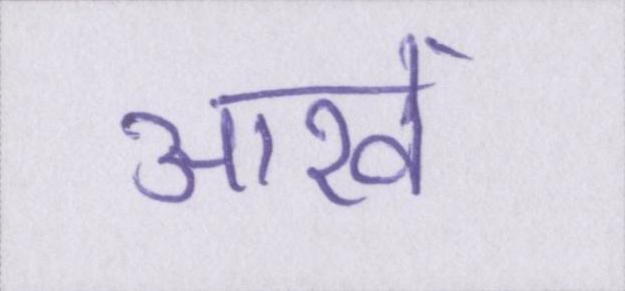 आखें